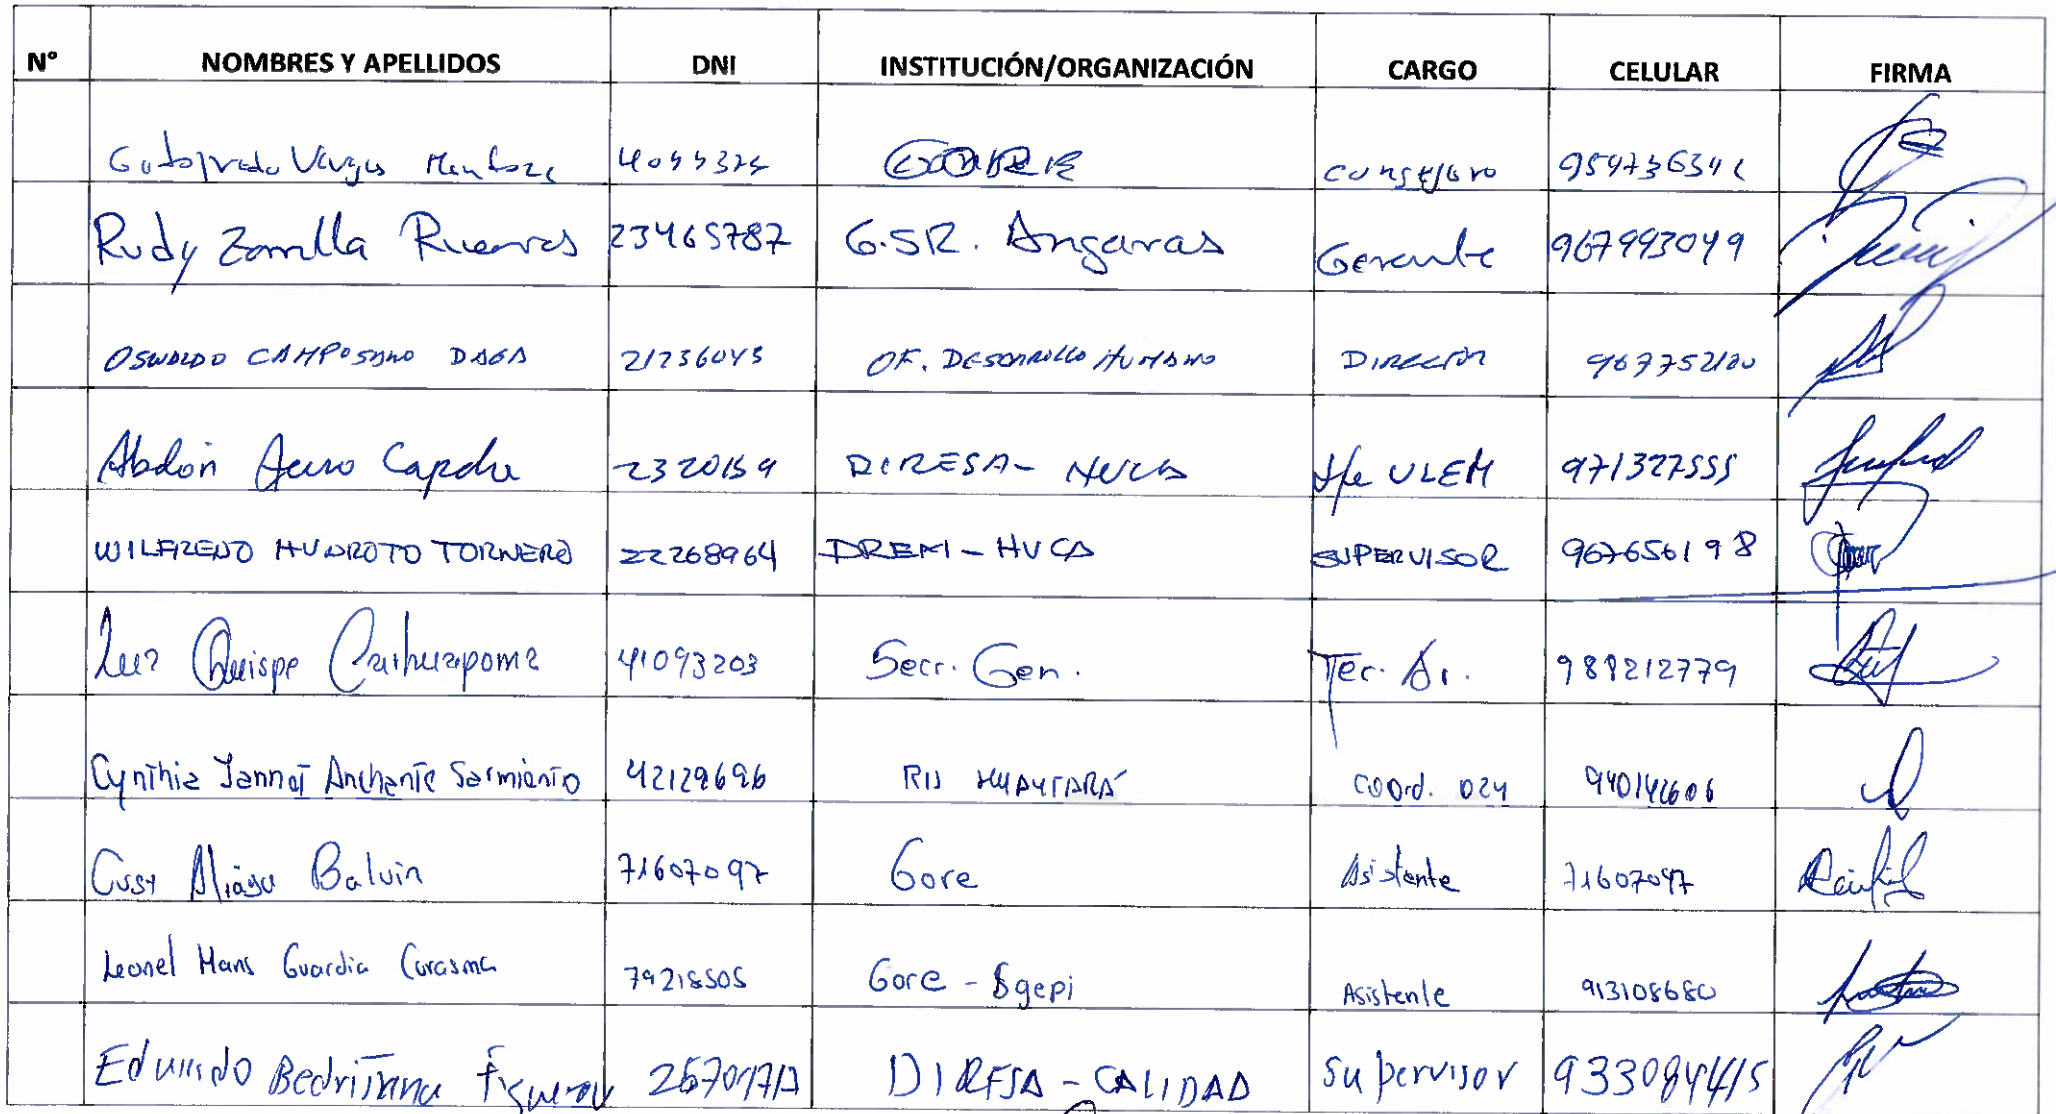 N° NOMBRES Y APELLIDOS DNI INSTITUCIÓN/ORGANIZACIÓN CARGO CELULAR FIRMA
Vargas Mendoza consejero
Rudy Zorrilla 23465787 G.SR. Angaras Gerente 967993049
OSWALDO CAMPOSANO DAGA 21236045 OF. DESARROLLO HUMANO DIRECTOR
Abdón DIRESA- HVCA Jefe ULEM 971327555
WILFREDO HUAROTO TORNERO 22268964 DREM - HVCA SUPERVISOR 967656198
Luz Quispe Carhuapoma 41093203 Secr. Gen. Tec. 988212779
Cynthia Jannet Anchante Sarmiento 42129696 RIS HUAYTARÁ Coord. 024 940142606
Aliaga Balvin 71607097 Gore Asistente 71607097
Leonel Hans Guardia Curasma Gore - Sgepi Asistente 913108680
Eduardo Bedriñana Figueroa DIRESA - CALIDAD Supervisor